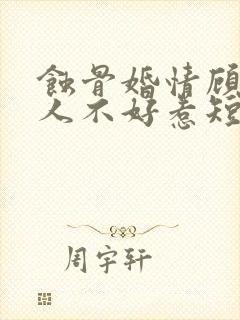 蚀骨婚情顾
人不好惹短
周宇轩